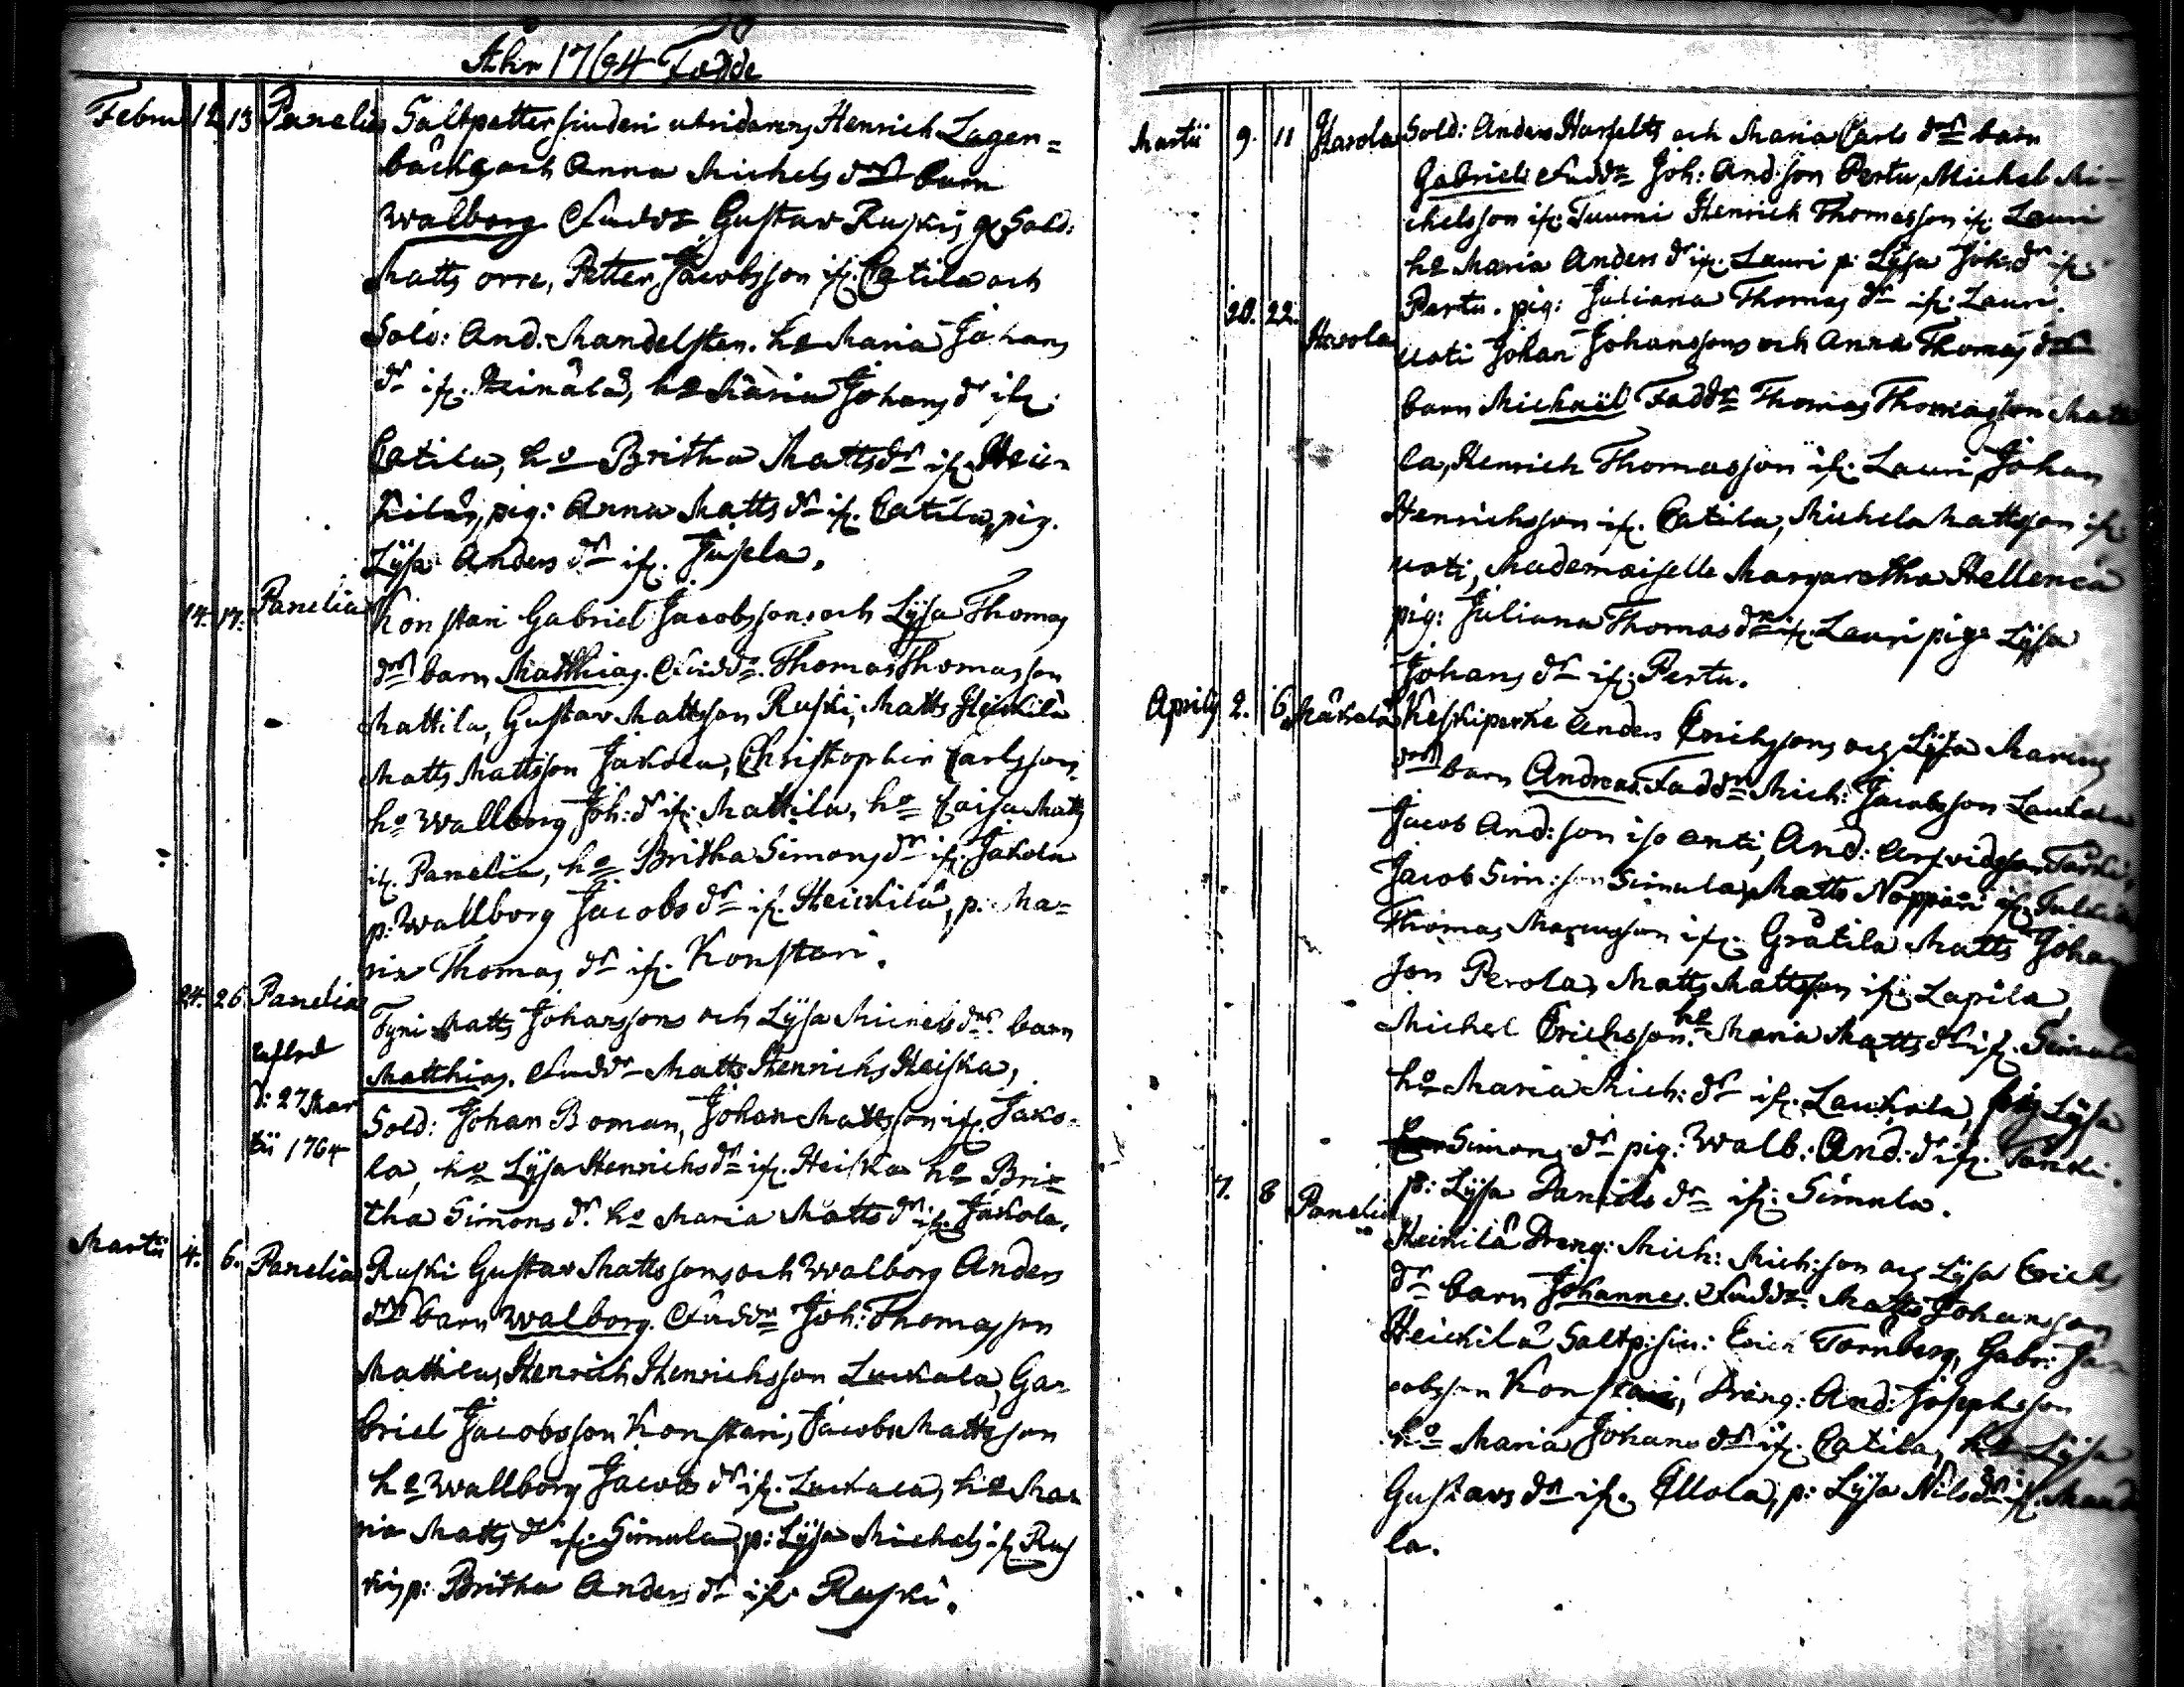 Åhr 1764 Födde
Febru 12 13 Panelia Saltpetter siuderi utridarens Henrich Lagen=
bäcks och Anna Michels drs barn
Walborg Fadd: Gustav Ruski, gl Sold:
Matts orre, Petter Jacobsson if. Catila och
Sold: And. Mandelsten. ho Maria Johans
dr if. Heinälä, ho Maria Johans dr if.
Catila, ho Britha Matts dr if. Heic=
kilä, pig: Anna Matts dr if. Catila, pig.
Lÿsa Anders dr if. Jusela.
14. 17. Panelia Konstari Gabriel Jacobssons och Lÿsa Thomas
drs barn Matthias. Fadd: Thomas Thomasson
Mattila, Gustav Mattsson Ruski, Matts Heickilä
Matts Mattsson Jakola, Christopher Carlsson,
ho Wallborg Joh: dr if: Mattila, ho Caisa Matts
if. Panelia, ho Britha Simons dr if. Jakola
p: Wallborg Jacobs dr if. Heickilä, p: Ma=
ria Thomas dr if. Konstari.
24. 26 Panelia Tyni Matts Johanssons och Lÿsa Michels drs barn
Matthias. Fadd: Matts Henrichs Heiska,
d: 27 Mar
tii 1764
Sold: Johan Boman, Johan Mattsson if. Jako=
la, ho Lÿsa Henrichs dr if. Heiska ho Bri=
tha Simons dr. ho Maria Matts dr if. Jakola.
Martii 4. 6. Panelia Ruski Gustav Mattssons och Walborg Anders
drs barn Walborg. Fadd: Joh: Thomasson
Mattila, Henrich Henrichsson Luckala, Ga=
briel Jacobsson Konstari, Jacob Mattsson
ho Wallborg Jacobs dr if. Luckala, ho Ma=
ria Matts dr if. Simula, p: Lÿsa Michels if. Rus
ki, p: Britha Anders dr if. Ruski.
Martii 9. 11 Harola Sold: Anders Harfelts och Maria Carls drs barn
Gabriel: Fadd: Joh: And:son Pertu, Michel Mi=
chelsson if. Tuumi Henrich Thomasson if. Lauri
ho Maria Anders dr if. Lauri p: Lÿsa Joh: dr if.
Pertu. pig: Juliana Thomas dr if: Lauri.
20. 22. Harola Uoti Johan Johanssons och Anna Thomas drs
barn Michaël Fadd: Thomas Thomasson Matti
la, Henrich Thomasson if. Lauri, Johan
Henrichsson if. Catila, Michel Mattsson if.
Uoti, Mademoiselle Margaretha Hellenia
pig: Juliana Thomas dr if. Lauri pig: Lÿsa
Johans dr if: Pertu.
Aprilis 2. 6. Mäkelä Keskiperke Anders Erichssons och Lÿsa Marcus
drs barn Andreas. Fadd: Mich: Jacobsson Laukola
Jacob And:son iso anti, And: Arfvidsson Tanki,
Jacob Sim:son Simula, Matts Noppari if.
Thomas Marcusson if. Grätila Matts Johan
son Perola, Matts Mattsson if: Lapila,
Michel Erichsson. ho Maria Matts dr if. Simula
ho Maria Mich: dr if. Laukola, pig Lÿsa
Simons dr pig: Walb: And: dr if. Tanki.
p: Lÿsa Daniels dr if: Simula.
7. 8 Panelia Heikilä Dreng: Mich: Mich:son och Lÿsa Erichs
dr barn Johannes. Fadd: Matts Johansson
Heickilä Saltp: siu: Erich Tornberg, Gabr: Ja=
cobsson Konstari, Dräng: And: Josephsson
ho Maria Johans dr if. Catila, ho Lÿsa
Gustavs dr if. Ellola, p: Lÿsa Nils dr if. Mand
la.